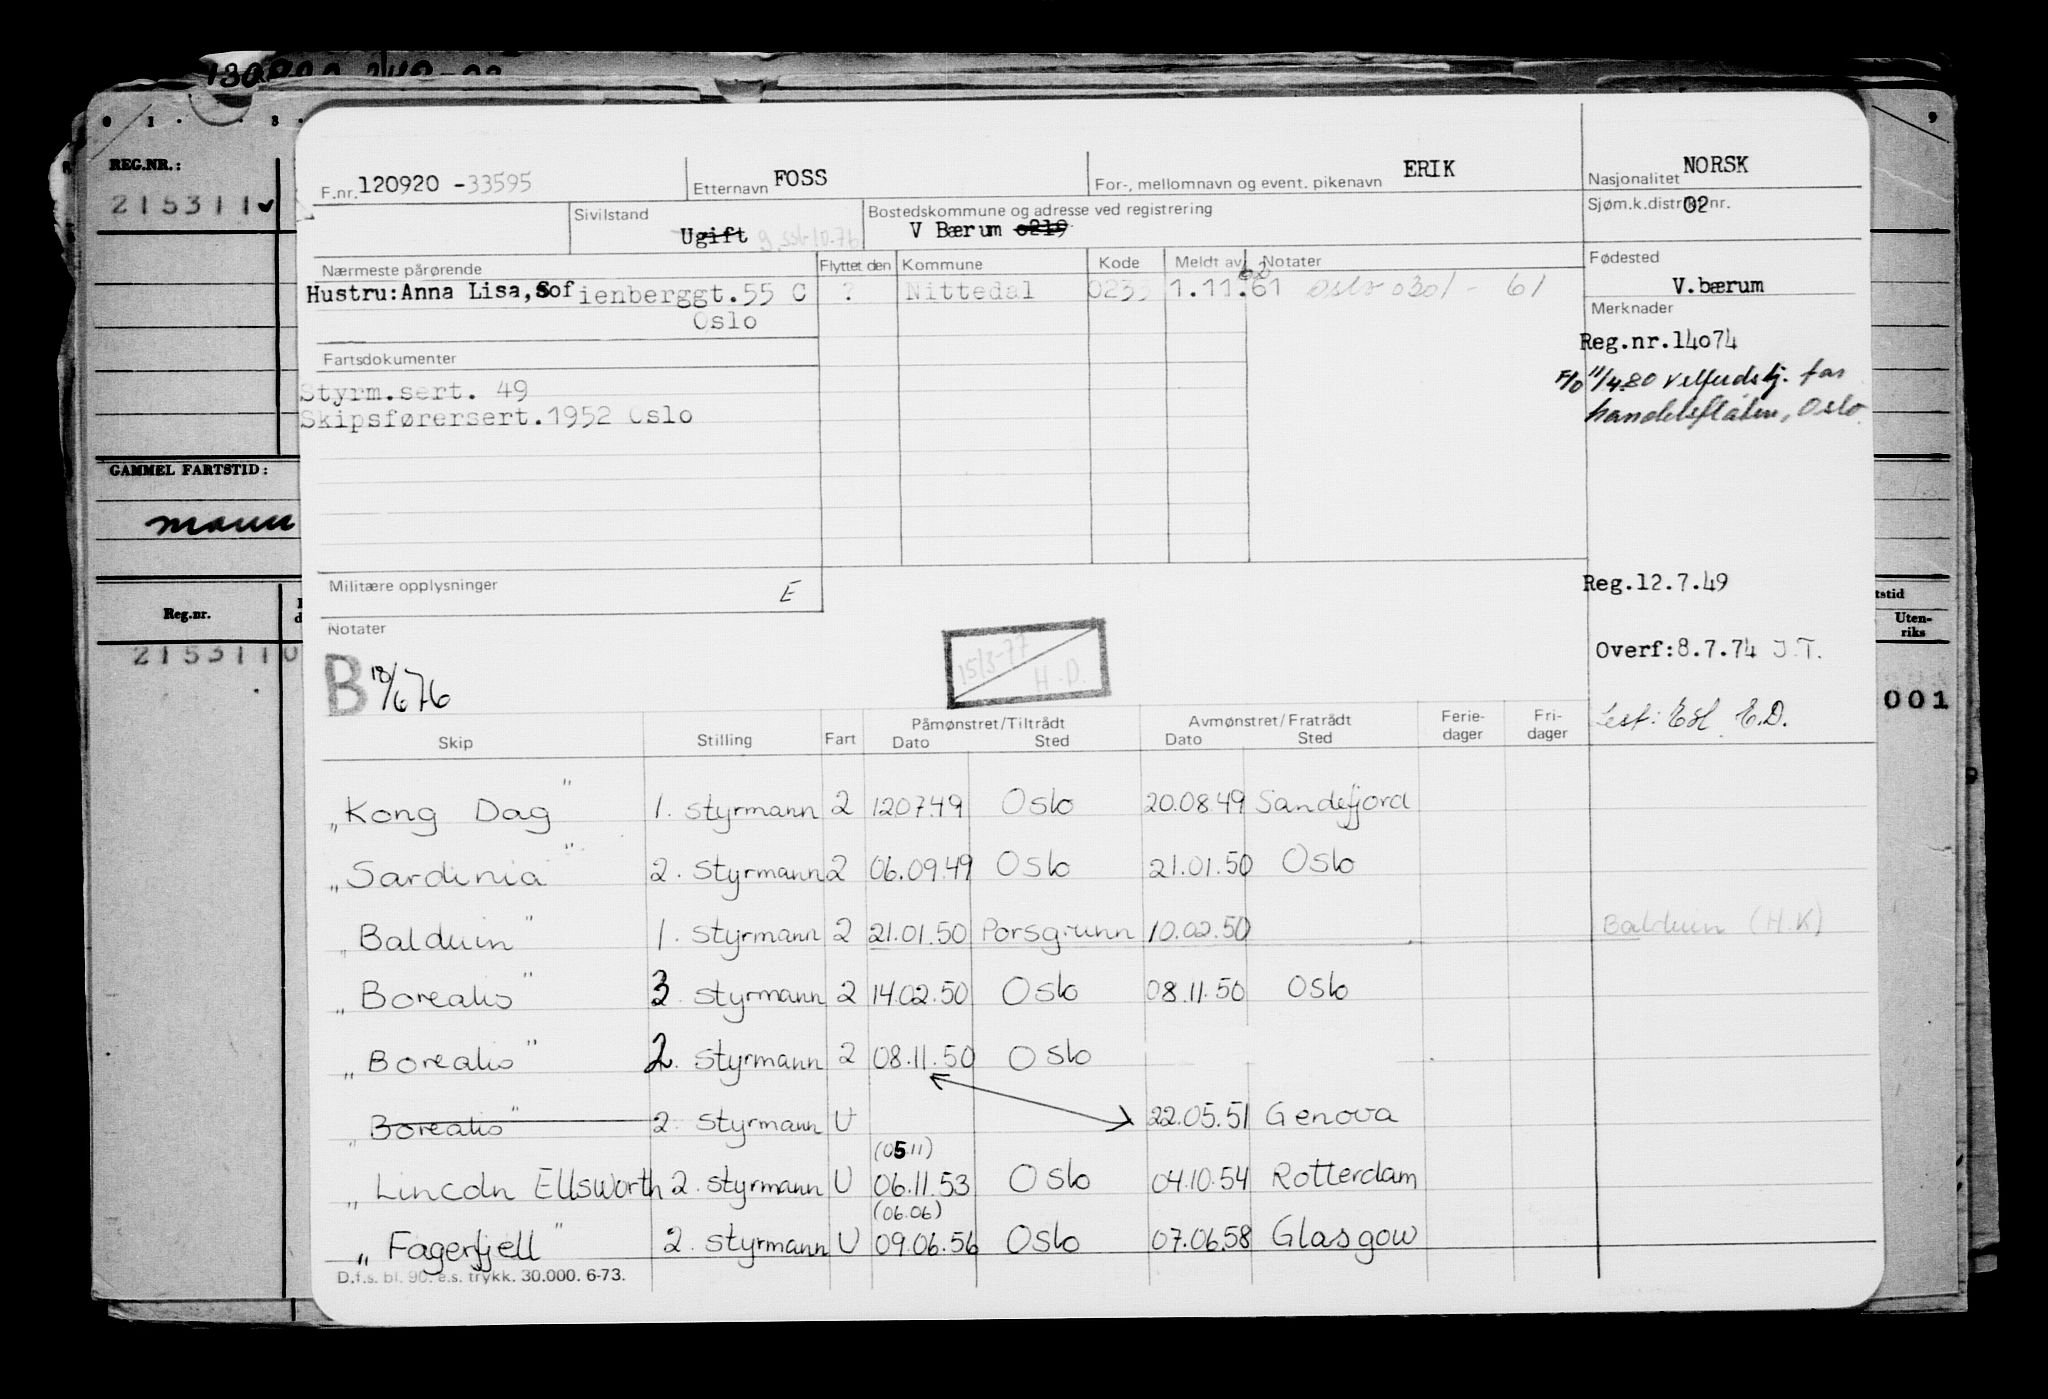 REG.NR.:
215311
GAMMEL FARTSTID:
Reg.nr.
2153110
F.nr. 120920 -33595
Etternavn FOSS
For-, mellomnavn og event. pikenavn ERIK
Nasjonalitet NORSK
Sivilstand
Ugift
Bostedskommune og adresse ved registrering
V Bærum 0219
Sjøm.k.distrikt nr.
02
Nærmeste pårørende
Hustru: Anna Lisa, Sofienberggt. 55 C
Oslo
Flyttet den Kommune Kode Meldt av Notater
? Nittedal 1.11.61 Oslo 0301 - 61
62
Fødested
V. bærum
Merknader
Reg.nr. 14074
F/O 11/4.80 Velferdstj. for
handelsflåten, Oslo.
Fartsdokumenter
Styrm.sert. 49
Skipsførersert. 1952 Oslo
Militære opplysninger E
Reg. 12.7.49
Notater
B 18/6 76
15/3-77
H.D.
Overf: 8.7.74 J.T.
E.D.
Skip Stilling Fart Påmønstret/Tiltrådt Dato Sted Avmønstret/Fratrådt Dato Sted Ferie-dager Fri-dager
„Kong Dag" 1. styrmann 2 120749 Oslo 20.08.49 Sandefjord
„Sardinia" 2. styrmann 2 06.09.49 Oslo 21.01.50 Oslo
„Balduin" 1. styrmann 2 21.01.50 Porsgrunn 10.02.50 Balduin (H.K)
„Borealis" 3 styrmann 2 14.02.50 Oslo 08.11.50 Oslo
„Borealis" 2. styrmann 2 08.11.50 Oslo
„Borealis" 2. styrmann U 22.05.51 Genova
(05.11)
„Lincoln Ellsworth 2. styrmann U 06.11.53 Oslo 04.10.54 Rotterdam
(06.06)
„Fagerfjell" 2. styrmann U 09.06.56 Oslo 07.06.58 Glasgow
D.f.s. bl. 90. e.s. trykk. 30.000. 6-73.
9
Uten-
riks
001